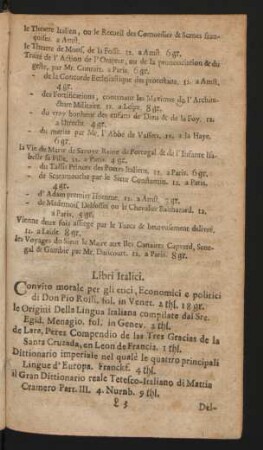 le Theatre Italien, ou le Recueil des Comoedies & Scenes fran-
çoises. 12. à Amst.
le Theatre de Mons. de la Fosse. 12. à Amst. 6 gr.
Traité de l'Action de l'Orateur, ou de la prononciation & du
geste, par Mr. Conrart. à Paris. 6 gr.
— de la Concorde Ecclesiastique des protestans. 12. à Amst.
4 gr.
— des Fortifications, contenant les Maximes de l'Archite-
cture Militaire. 12. à Leide. 8 gr.
— du vray bonheur des enfans de Dieu & de la Foy. 12.
à Utrecht. 4 gr.
— du mariage par l'Abbé de Villiers. 12. à la Haye.
6 gr.
la Vie de Marie de Savoye Reine de Portugal & de l'Infante Isa-
belle sa Fille. 12. à Paris. 4 gr.
— du Tasse Prince des Poetes Italiens. 12. à Paris. 6 gr.
— de Scaramouche par le Sieur Constantin. 12. à Paris.
4 gr.
— d'Adam premier Homme. 12. à Amst. 3 gr.
— de Chevalier Balthazard. 12.
à Paris. 5 gr.
Vienne deux fois assiegé par le Turcs & heureusement delivré.
12. à Leide. 8 gr.
les Voyages du Sieur le Maire aux Iles Canaries Capverd, Sene-
gal & Gambie par Mr. Dancourt. 12. à Paris. 8 gr.
Libri Italici.
Convito morale per gli etici, Economici e politici
di Don Pio Rossi. fol. in Venet. 2 thl. 18 gr.
le Origini Della Lingua Italiana compilate dal Sre.
Egid. Menagio. fol. in Genev. 2 thl.
de Lara, Perez Compendio de las Tres Gracias de la
Santa Cruzada, en Leon de Francia. 1 thl.
Dittionario imperiale nel quale le quattro principali
Lingue d'Europa. Franckf. 4 thl.
il Gran Dittionario reale Tetesco-Italiano di Mattia
Cramero Part. III. 4. Nurnb. 9 thl.
E 5
Del-